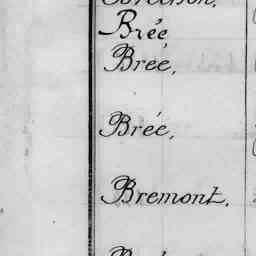 Brée
Brée,
Brée,
Bremont.